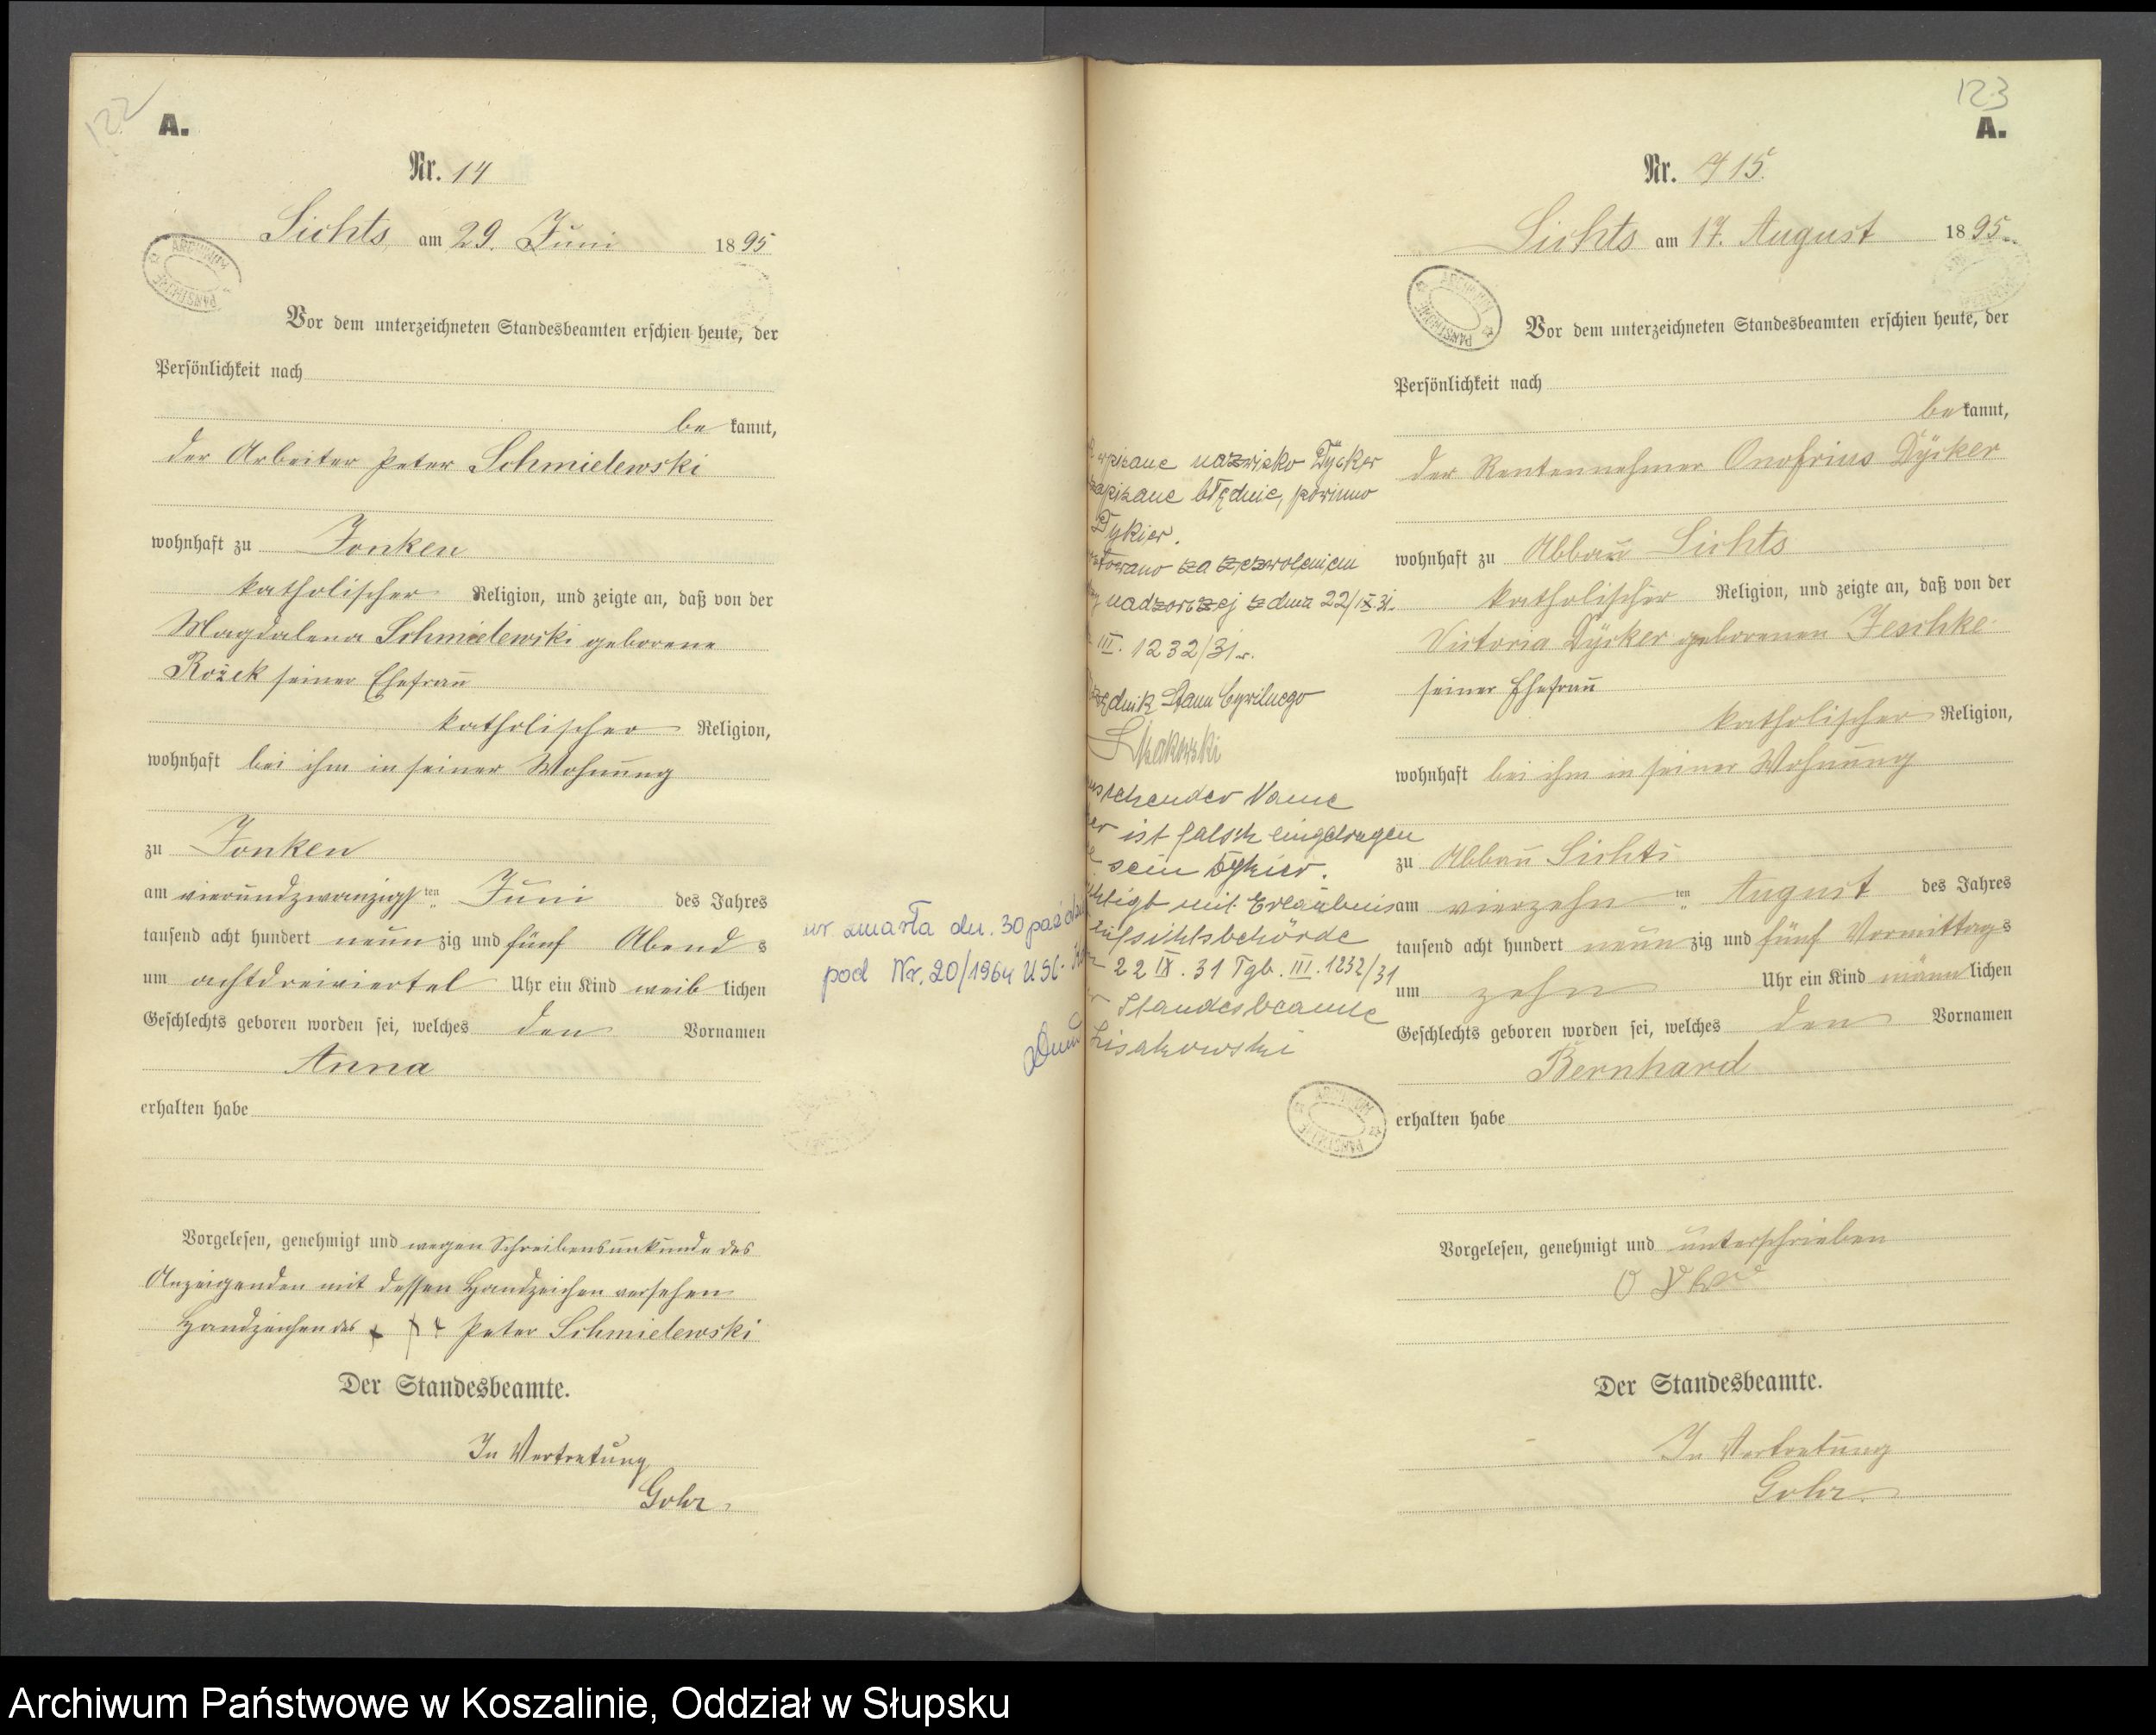 122
A.
Nr. 14
Sichts am 29. Juni 1895
Vor dem unterzeichneten Standesbeamten erschien heute, der
Persönlichkeit nach
be kannt,
der Arbeiter Peter Schmielewski
wohnhaft zu Jonken
katholischer Religion, und zeigte an, daß von der
Magdalena Schmielewski geborene
Rożek seiner Ehefrau
katholischer Religion,
wohnhaft bei ihm in seiner Wohnung
zu Jonken
am vierundzwanzigsten Juni des Jahres
tausend acht hundert neunzig und fünf Abends
um achtdreiviertel Uhr ein Kind weiblichen
Geschlechts geboren worden sei, welches den Vornamen
Anna
erhalten habe
Vorgelesen, genehmigt und wegen Schreibensunkunde des
Anzeigenden mit dessen Handzeichen versehen
Handzeichen des + + + Peter Schmielewski
Der Standesbeamte.
In Vertretung
Gohr.
ur. zmarła dn. 30 paźdz
pod Nr. 20/1964 USC.
ARCHIWUM PAŃSTWOWE
123
A.
Nr. 15.
Sichts am 17. August 1895
Vor dem unterzeichneten Standesbeamten erschien heute, der
Persönlichkeit nach
be kannt,
der Rentennehmer Onofrius Dÿcker
wohnhaft zu Abbau Sichts
katholischer Religion, und zeigte an, daß von der
Victoria Dÿcker geborenen Jeschke
seiner Ehefrau
katholischer Religion,
wohnhaft bei ihm in seiner Wohnung
zu Abbau Sichts
am vierzehnten August des Jahres
tausend acht hundert neunzig und fünf Vormittags
um zehn Uhr ein Kind männlichen
Geschlechts geboren worden sei, welches den Vornamen
Bernhard
erhalten habe
Vorgelesen, genehmigt und unterschrieben
Der Standesbeamte.
In Vertretung
Gohr.
nazwisko Dycker
zapisane błędnie, powinno
Dykier.
za zezwoleniem
nadzorczej z dnia 22/IX 31.
III. 1232/31 r.
Stanu Cywilnego
Lisakowski
stehender Name
ist falsch eingetragen
sein Dykier.
mit Erlaubnis
ufsichtsbehörde
22 IX. 31 Tgb. III. 1232/31
Standesbeamte
Lisakowski
ARCHIWUM PAŃSTWOWE
Archiwum Państwowe w Koszalinie, Oddział w Słupsku